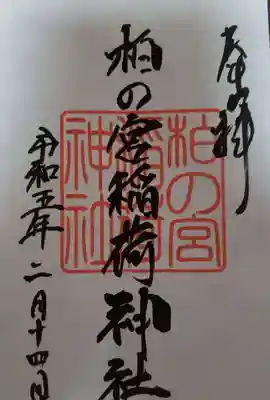 奉拝
柏の宮稲荷神社
柏の宮
稲荷
神社
令和五年二月十四日